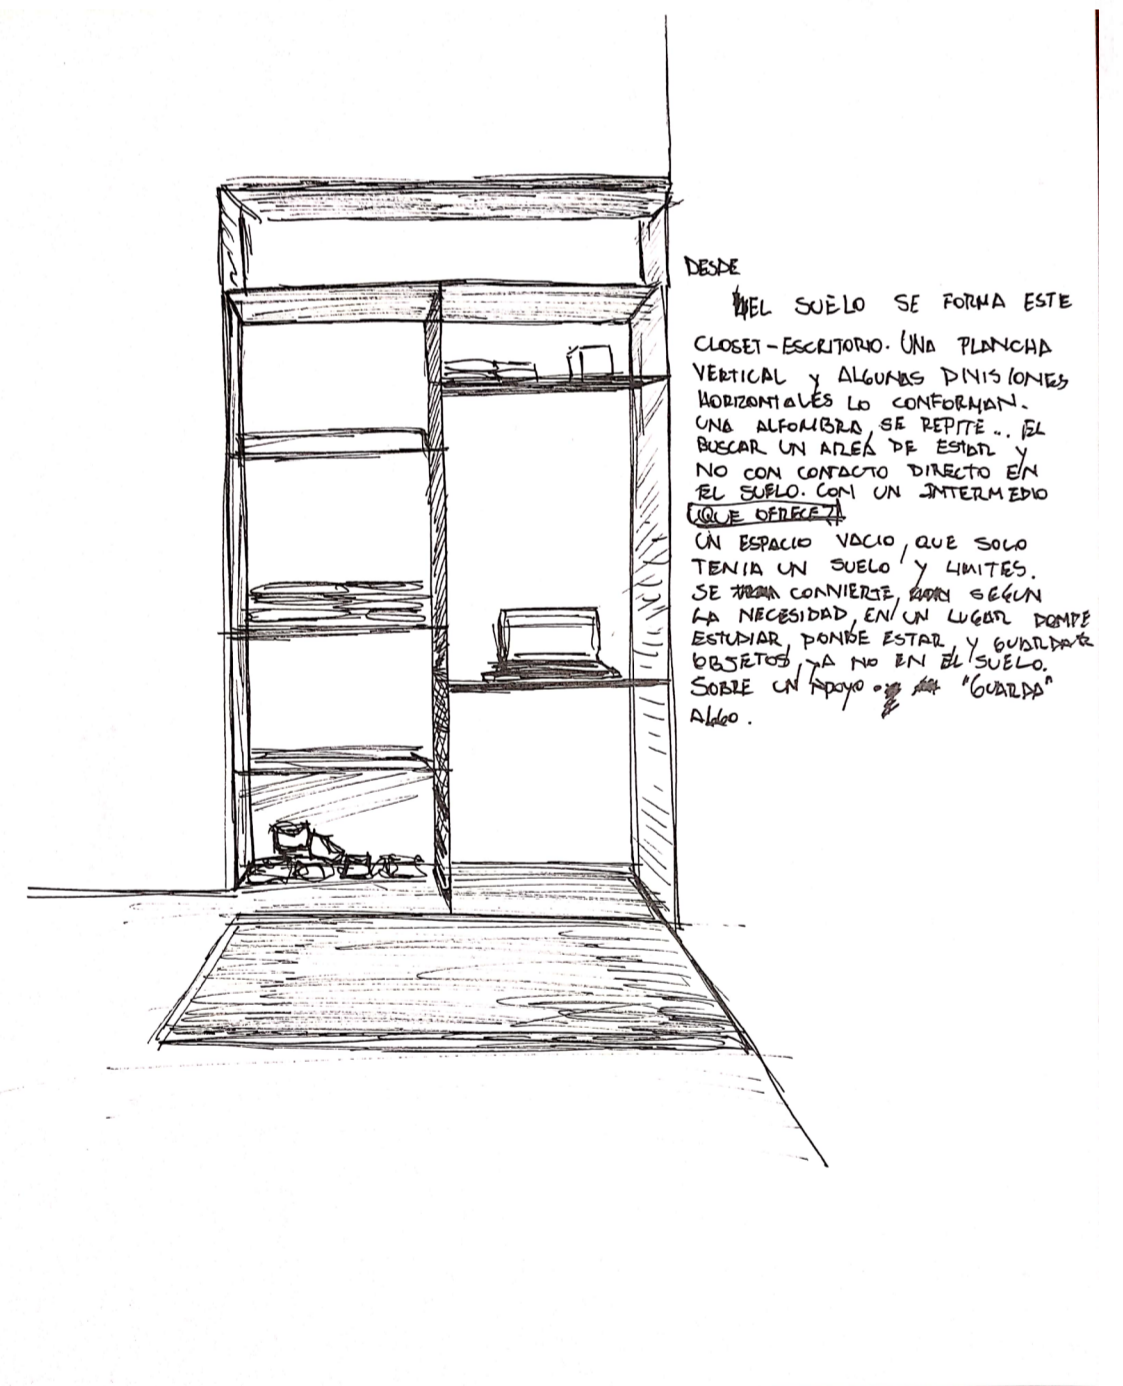 DESDE
EL SUELO SE FORMA ESTE
CLOSET-ESCRITORIO. UNA PLANCHA
VERTICAL Y ALGUNAS DIVISIONES
HORIZONTALES LO CONFORMAN.
UNA ALFOMBRA, SE REPITE... EL
BUSCAR UN AREA DE ESTAR Y
NO CON CONTACTO DIRECTO EN
EL SUELO. CON UN INTERMEDIO
¿QUE OFRECE?
UN ESPACIO VACIO, QUE SOLO
TENIA UN SUELO Y LIMITES.
SE CONVIERTE, SEGÚN
LA NECESIDAD, EN UN LUGAR DONDE
ESTUDIAR, DONDE ESTAR, Y GUARDAR
OBJETOS, YA NO EN EL SUELO.
SOBRE UN APOYO. "GUARDA"
ALGO.